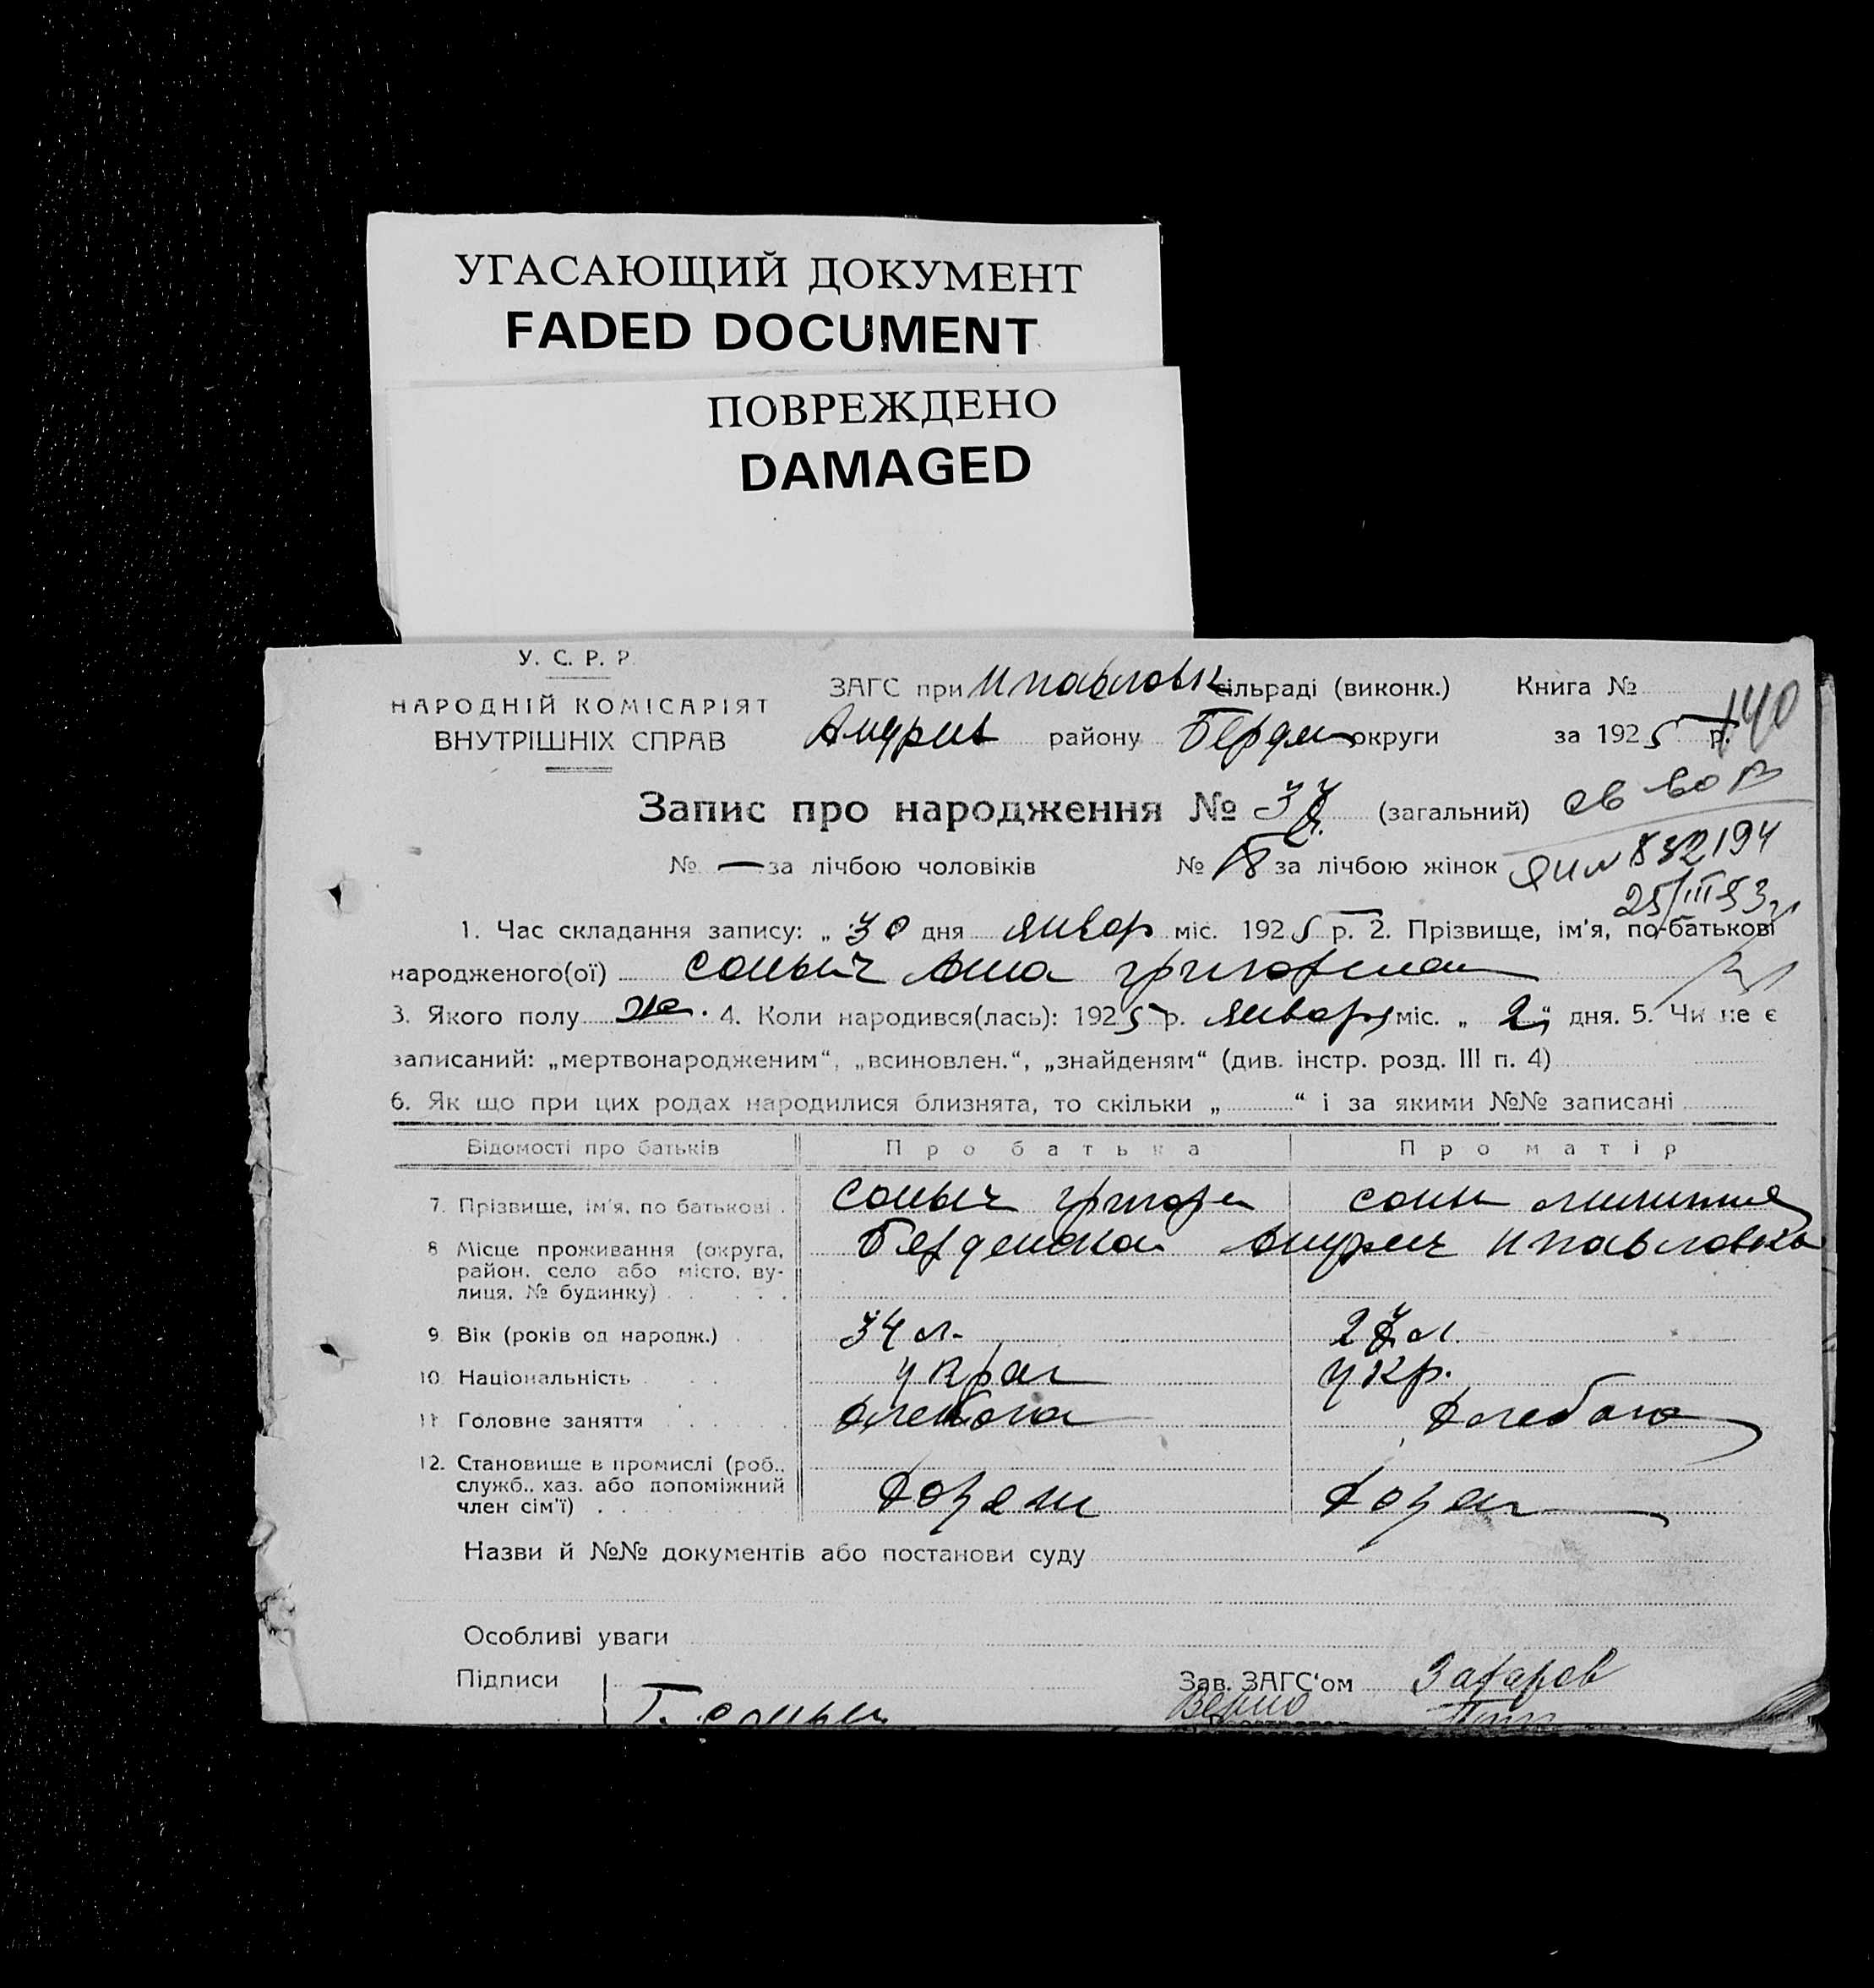 УГАСАЮЩИЙ ДОКУМЕНТ
FADED DOCUMENT
ПОВРЕЖДЕНО
DAMAGED
У. С. Р. Р.
НАРОДНІЙ КОМІСАРІЯТ
ВНУТРІШНІХ СПРАВ
ЗАГС при Ипавловк сільраді (виконк.) Книга №
Андрив району Бердян округи за 1925 р.
140
Запис про народження № (загальний)
№ — за лічбою чоловіків № 18 за лічбою жінок
832194
25/III 53 г
1. Час складання запису: „ 30 дня январ міс. 1925 р. 2. Прізвище, ім'я, по-батькові
народженого(ої) Соныч Анна Григорьевна
3. Якого полу же. 4. Коли народився(лась): 1925 р. января міс. „ 2 “ дня. 5. Чи не є
записаний: „мертвонародженим“, „всиновлен.“, „знайденям“ (див. інстр. розд. III п. 4)
6. Як що при цих родах народилися близнята, то скільки „ “ і за якими №№ записані
Відомості про батьків Про батька Про матір
7. Прізвище, ім'я, по батькові . Соныч Григори
8 Місце проживання (округа, район, село або місто, вулиця, № будинку) Бердянская Андрич Ипавловка
9. Вік (років од народж.) 34 л. 27 л.
10. Національність украи укр.
11. Головне заняття хлебопа хлебопа
12. Становище в промислі (роб., служб., хаз. або допоміжний член сім'ї) хозяи хозяи
Назви й №№ документів або постанови суду
Особливі уваги
Підписи Зав. ЗАГС'ом Захаров
Верно